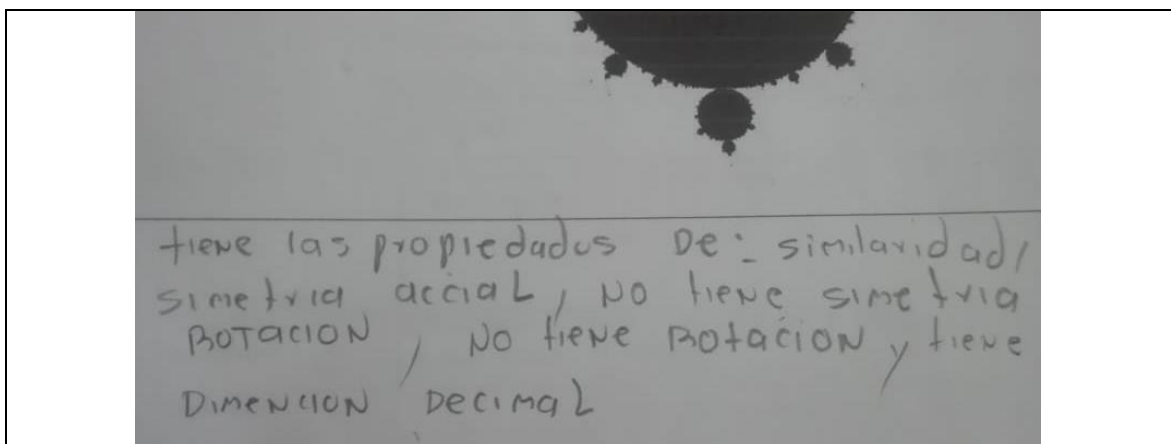 tiene las propiedades De: similaridad,
simetria accial, no tiene simetria
ROTACION, No tiene Rotación y tiene
Dimencion Decimal